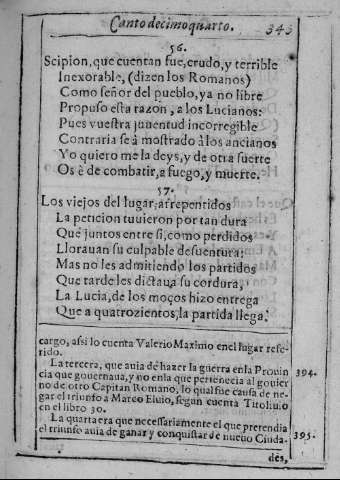 Canto decimoquarto. 343
56.
Scipion, que cuentan fue, crudo, y terrible
Inexorable, (dizen los Romanos)
Como señor del pueblo, ya no libre
Propuso esta razon, a los Lucianos:
Pues vuestra juuentud incorregible
Contraria se à mostrado à los ancianos
Yo quiero me la deys, y de otra suerte
Os è de combatir, a fuego, y muerte.
57.
Los viejos del lugar, arrepentidos
La peticion tuuieron por tan dura
Que juntos entre si, como perdidos
Llorauan su culpable desuentura:
Mas no les admitiendo los partidos
Que tarde les dictaua su cordura,
La Lucia, de los moços hizo entrega
Que a quatrozientos, la partida llega.
cargo, assi lo cuenta Valerio Maximo en el lugar refe-
rido.
La tercera, que auia de hazer la guerra en la Prouin 394.
cia que gouernaua, y no en la que pertenecia al gouier
no de otro Capitan Romano, lo qual fue causa de ne-
gar el triunfo a Marco Eluio, segun cuenta Titoliuio
en el libro 30.
La quarta era que necessariamente el que pretendia
el triunfo auia de ganar y conquistar de nueuo Ciuda- 395.
des,